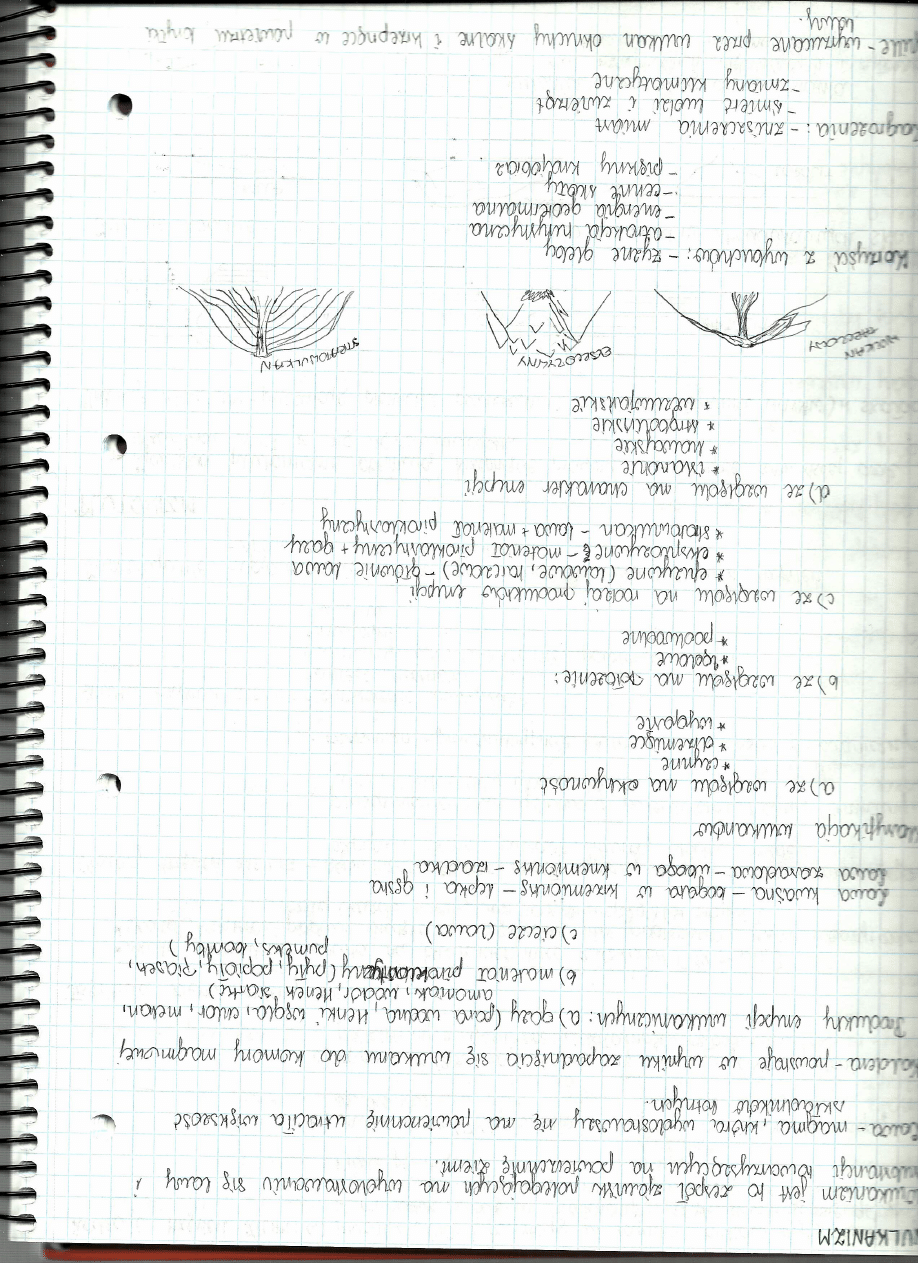 WULKANIZM
Wulkanizm jest to zespół zjawisk polegających na wydostawaniu się lawy i
substancji towarzyszących na powierzchnię Ziemi.
Lawa - magma, która wydostawszy się na powierzchnię utraciła większość
składników lotnych.
Kaldera - powstaje w wyniku zapadnięcia się wulkanu do komory magmowej
Produkty erupcji wulkanicznych: a) gazy (para wodna, tlenki węgla, chlor, metan,
amoniak, wodór, tlenek siarki)
b) materiał piroklastyczny (pyły, popioły, piasek,
pumeks, bomby)
c) ciecze (lawa)
Lawa kwaśna - bogata w krzemionkę - lepka i gęsta
Lawa zasadowa - uboga w krzemionkę - rzadka
Klasyfikacja wulkanów
a) ze względu na aktywność
* czynne
* drzemiące
* wygasłe
b) ze względu na położenie:
* lądowe
* podwodne
c) ze względu na rodzaj produktów erupcji
* efuzywne (lawowe, tarczowe) - głównie lawa
* eksplozywne - materiał piroklastyczny + gazy
* stratowulkan - lawa + materiał piroklastyczny
d) ze względu na charakter erupcji
* islandzkie
* hawajskie
* strombolińskie
* wezuwiańskie
WULKAN TARCZOWY
EKSPLOZYWNY
STRATOWULKAN
Korzyści z wybuchów: - żyzne gleby
- atrakcja turystyczna
- energia geotermalna
- cenne skały
- piękny krajobraz
Zagrożenia: - zniszczenia miast
- śmierć ludzi i zwierząt
- zmiany klimatyczne
- wyrzucane przez wulkan okruchy skalne i krzepnące w powietrzu krople
lawy.